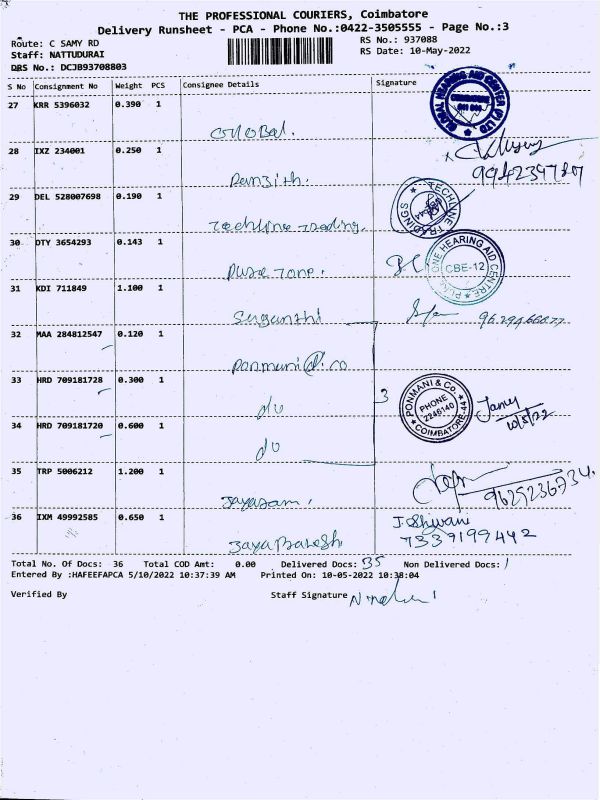 THE PROFESSIONAL COURIERS, Coimbatore
Delivery Runsheet - PCA - Phone No.:0422-3505555 - Page No.:3
Route: C SAMY RD
RS No.: 937088
Staff: NATTUDURAI
RS Date: 10-May-2022
DRS No.: DCJB93708803
S No Consignment No Weight PCS Consignee Details Signature
27 KRR 5396032 0.390 1
GLOBAL HEARING AID CENTER (P) LTD
Global.
28 IXZ 234001 0.250 1
Ranjith.
29 DEL 528007698 0.190 1
TECHLINE TRADINGS
Techline Trading.
30 DTY 3654293 0.143 1
HEARING AID CENTRE
CBE-12
Pure Tone.
31 KDI 711849 1.100 1
Suganthi
32 MAA 284812547 0.120 1
Ponmani & co
33 HRD 709181728 0.300 1
3
PONMANI & Co.
PHONE
2246140
COIMBATORE-44
10/5/22
du
34 HRD 709181720 0.600 1
du
35 TRP 5006212 1.200 1
Jayaram.
9629236734.
36 IXM 49992585 0.650 1
J. Shivani
7339199442
Jaya Prakash
Total No. Of Docs: 36 Total COD Amt: 0.00 Delivered Docs: 35 Non Delivered Docs: 1
Entered By :HAFEEFAPCA 5/10/2022 10:37:39 AM Printed On: 10-05-2022 10:38:04
Verified By Staff Signature